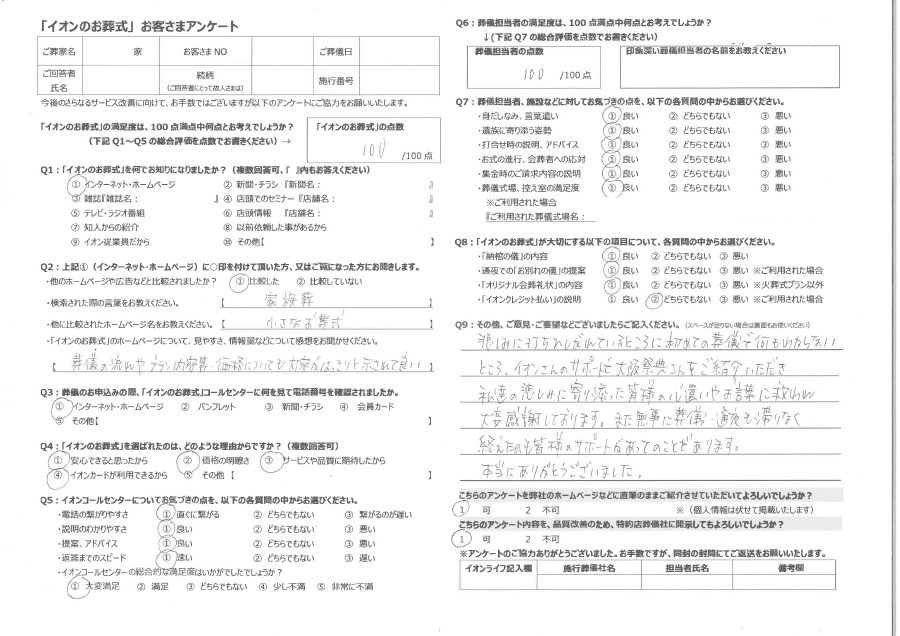 「イオンのお葬式」お客さまアンケート
ご葬家名 家 お客さまNO ご葬儀日
ご回答者氏名 続柄（ご回答者にとって故人さまは） 施行番号
今後のさらなるサービス改善に向けて、お手数ではございますが以下のアンケートにご協力をお願いいたします。
「イオンのお葬式」の満足度は、100点満点中何点とお考えでしょうか？
（下記Q1～Q5の総合評価を点数でお書きください）→
「イオンのお葬式」の点数
100 /100点
Q1：「イオンのお葬式」を何でお知りになりましたか？（複数回答可、『 』内もお答えください）
① インターネット・ホームページ ② 新聞・チラシ『新聞名： 』
③ 雑誌『雑誌名： 』 ④ 店頭でのセミナー『店舗名： 』
⑤ テレビ・ラジオ番組 ⑥ 店頭情報 『店舗名： 』
⑦ 知人からの紹介 ⑧ 以前依頼した事があるから
⑨ イオン従業員だから ⑩ その他【 】
Q2：上記①（インターネット・ホームページ）に○印を付けて頂いた方、又はご覧になった方にお聞きします。
・他のホームページや広告などと比較されましたか？ ① 比較した ② 比較していない
・検索された際の言葉をお教えください。 【 家族葬 】
・他に比較されたホームページ名をお教えください。【 小さなお葬式 】
・「イオンのお葬式」のホームページについて、見やすさ、情報量などについて感想をお聞かせください。
【 葬儀の流れやプラン内容等・価格についても内容がはっきりと示されて良い 】
Q3：葬儀のお申込みの際、「イオンのお葬式」コールセンターに何を見て電話番号を確認されましたか。
① インターネット・ホームページ ② パンフレット ③ 新聞・チラシ ④ 会員カード
⑤ その他【 】
Q4：「イオンのお葬式」を選ばれたのは、どのような理由からですか？（複数回答可）
① 安心できると思ったから ② 価格の明瞭さ ③ サービスや品質に期待したから
④ イオンカードが利用できるから ⑤ その他【 】
Q5：イオンコールセンターについてお気づきの点を、以下の各質問の中からお選びください。
・電話の繋がりやすさ ① 直ぐに繋がる ② どちらでもない ③ 繋がるのが遅い
・説明のわかりやすさ ① 良い ② どちらでもない ③ 悪い
・提案、アドバイス ① 良い ② どちらでもない ③ 悪い
・返答までのスピード ① 速い ② どちらでもない ③ 遅い
・イオンコールセンターの総合的な満足度はいかがでしたでしょうか？
① 大変満足 ② 満足 ③ どちらでもない ④ 少し不満 ⑤ 非常に不満
Q6：葬儀担当者の満足度は、100点満点中何点とお考えでしょうか？
↓（下記Q7の総合評価を点数でお書きください）
葬儀担当者の点数
100 /100点
印象深い葬儀担当者の名前をお教えください
Q7：葬儀担当者、施設などに対してお気づきの点を、以下の各質問の中からお選びください。
・身だしなみ、言葉遣い ① 良い ② どちらでもない ③ 悪い
・遺族に寄り添う姿勢 ① 良い ② どちらでもない ③ 悪い
・打合せ時の説明、アドバイス ① 良い ② どちらでもない ③ 悪い
・お式の進行、会葬者への応対 ① 良い ② どちらでもない ③ 悪い
・集会時のご請求内容の説明 ① 良い ② どちらでもない ③ 悪い
・葬儀式場、控え室の満足度 ① 良い ② どちらでもない ③ 悪い
※ご利用された場合
『ご利用された葬儀式場名：
Q8：「イオンのお葬式」が大切にする以下の項目について、各質問の中からお選びください。
・「納棺の儀」の内容 ① 良い ② どちらでもない ③ 悪い
・通夜での「お別れの儀」の提案 ① 良い ② どちらでもない ③ 悪い ※ご利用された場合
・「オリジナル会葬礼状」の内容 ① 良い ② どちらでもない ③ 悪い ※火葬式プラン以外
・「イオンクレジット払い」の説明 ① 良い ② どちらでもない ③ 悪い ※ご利用された場合
Q9：その他、ご意見・ご要望などございましたらご記入ください。（スペースが足りない場合は裏面もお使いください）
悲しみに打ちひしがれているところに初めての葬儀で何もわからない
ところ、イオンさんのサポートで大阪祭典さんをご紹介いただき
私達の悲しみに寄り添った皆様の心遣いやお言葉に救われ
大変感謝しております。また無事に葬儀・通夜も滞りなく
終えたのも皆様のサポートがあってのことであります。
本当にありがとうございました。
こちらのアンケートを弊社のホームページなどに直筆のままご紹介させていただいてよろしいでしょうか？
1 可 2 不可 ※（個人情報は伏せて掲載いたします）
こちらのアンケート内容を、品質改善のため、特約店葬儀社に開示してもよろしいでしょうか？
1 可 2 不可
※アンケートのご協力ありがとうございました。お手数ですが、同封の封筒にてご返送をお願いいたします。
イオンライフ記入欄 施行葬儀社名 担当者氏名 備考欄